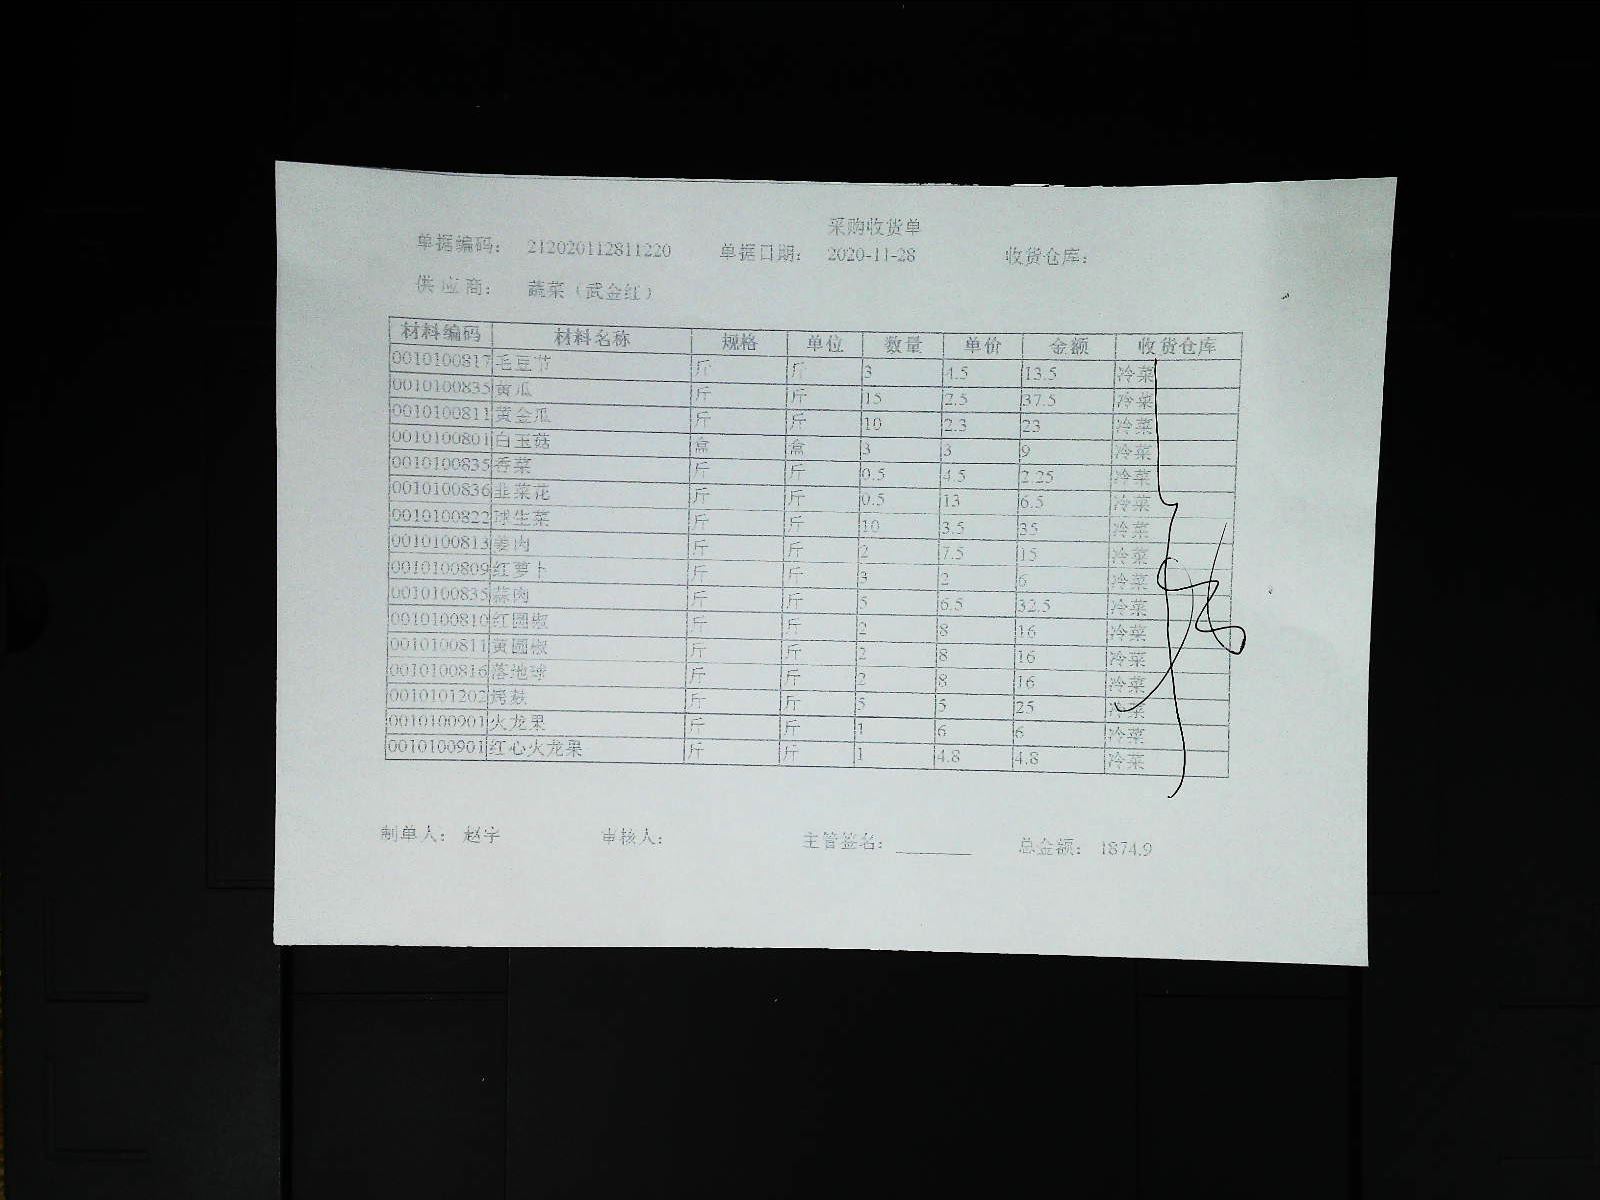 采购收货单
单据编码: 212020112811220 单据日期: 2020-11-28 收货仓库:
供应商: 蔬菜（武金红）
材料编码 材料名称 规格 单位 数量 单价 金额 收货仓库
0010100817 毛豆节 斤 斤 3 4.5 13.5 冷菜
0010100835 黄瓜 斤 斤 15 2.5 37.5 冷菜
0010100811 黄金瓜 斤 斤 10 2.3 23 冷菜
0010100801 白玉菇 盒 盒 3 3 9 冷菜
0010100835 香菜 斤 斤 0.5 4.5 2.25 冷菜
0010100836 韭菜花 斤 斤 0.5 13 6.5 冷菜
0010100822 球生菜 斤 斤 10 3.5 35 冷菜
0010100813 姜肉 斤 斤 2 7.5 15 冷菜
0010100809 红萝卜 斤 斤 3 2 6 冷菜
0010100835 蒜肉 斤 斤 5 6.5 32.5 冷菜
0010100810 红圆椒 斤 斤 2 8 16 冷菜
0010100811 黄圆椒 斤 斤 2 8 16 冷菜
0010100816 落地球 斤 斤 2 8 16 冷菜
0010101202 烤麸 斤 斤 5 5 25 冷菜
0010100901 火龙果 斤 斤 1 6 6 冷菜
0010100901 红心火龙果 斤 斤 1 4.8 4.8 冷菜
制单人: 赵宇 审核人: 主管签名: 总金额: 1874.9